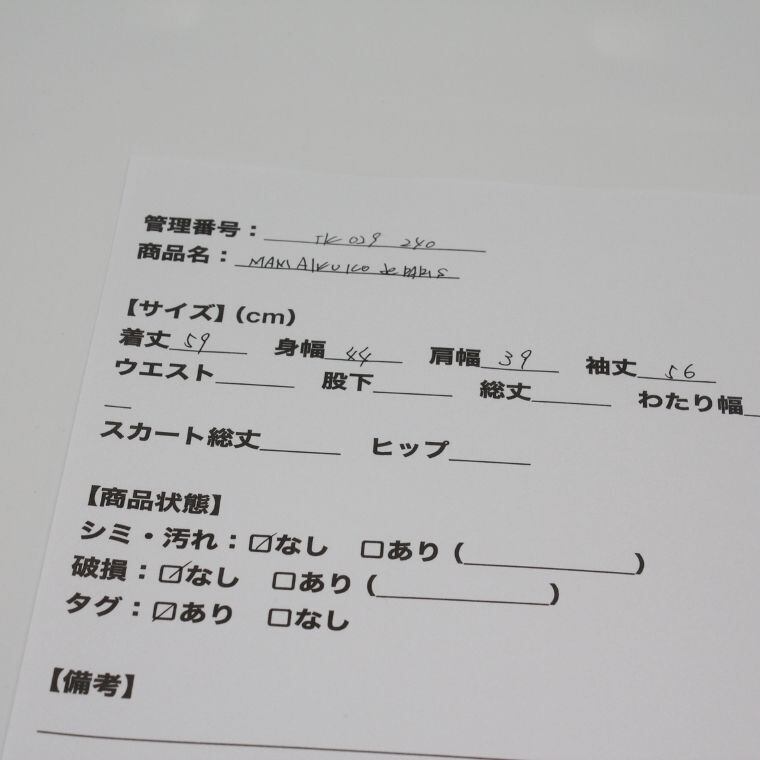 管理番号： TK 029 240
商品名：
【サイズ】(cm)
着丈 59 身幅 44 肩幅 39 袖丈 56
ウエスト 股下 総丈 わたり幅
スカート総丈 ヒップ
【商品状態】
シミ・汚れ：☑なし □あり（ ）
破損：☑なし □あり（ ）
タグ：☑あり □なし
【備考】